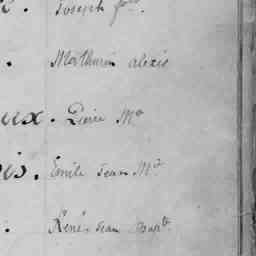 . Joseph f
. Mathurin alexis
ux. Pierre Mie
is. Emile Jean Mie
. René Jean Bapte